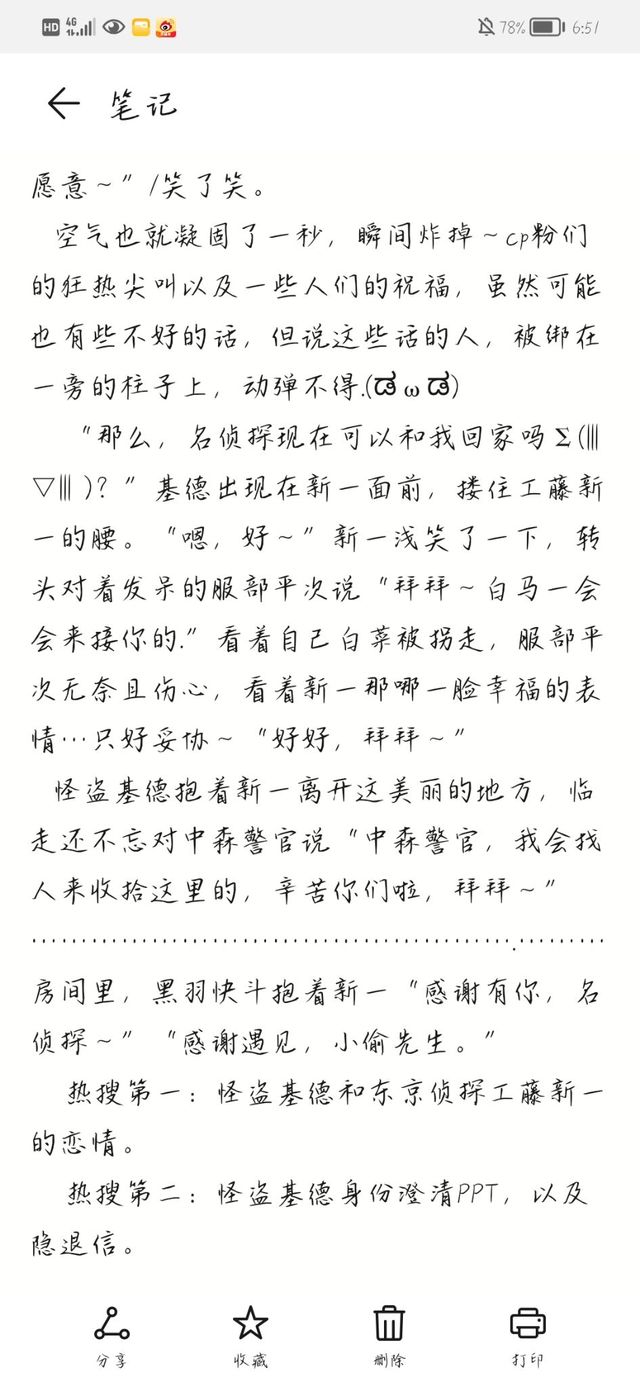 HD 4G 78% 6:51
笔记
愿意～”/笑了笑。
空气也就凝固了一秒，瞬间炸掉～cp粉们
的狂热尖叫以及一些人们的祝福，虽然可能
也有些不好的话，但说这些话的人，被绑在
一旁的柱子上，动弹不得.(ಡωಡ)
“那么，名侦探现在可以和我回家吗Σ(|||
▽||| )？”基德出现在新一面前，搂住工藤新
一的腰。“嗯，好～”新一浅笑了一下，转
头对着发呆的服部平次说“拜拜～白马一会
会来接你的.”看着自己白菜被拐走，服部平
次无奈且伤心，看着新一那哪一脸幸福的表
情…只好妥协～“好好，拜拜～”
怪盗基德抱着新一离开这美丽的地方，临
走还不忘对中森警官说“中森警官，我会找
人来收拾这里的，辛苦你们啦，拜拜～”
………………………………………………….………
房间里，黑羽快斗抱着新一“感谢有你，名
侦探～”“感谢遇见，小偷先生。”
热搜第一：怪盗基德和东京侦探工藤新一
的恋情。
热搜第二：怪盗基德身份澄清PPT，以及
隐退信。
分享 收藏 删除 打印